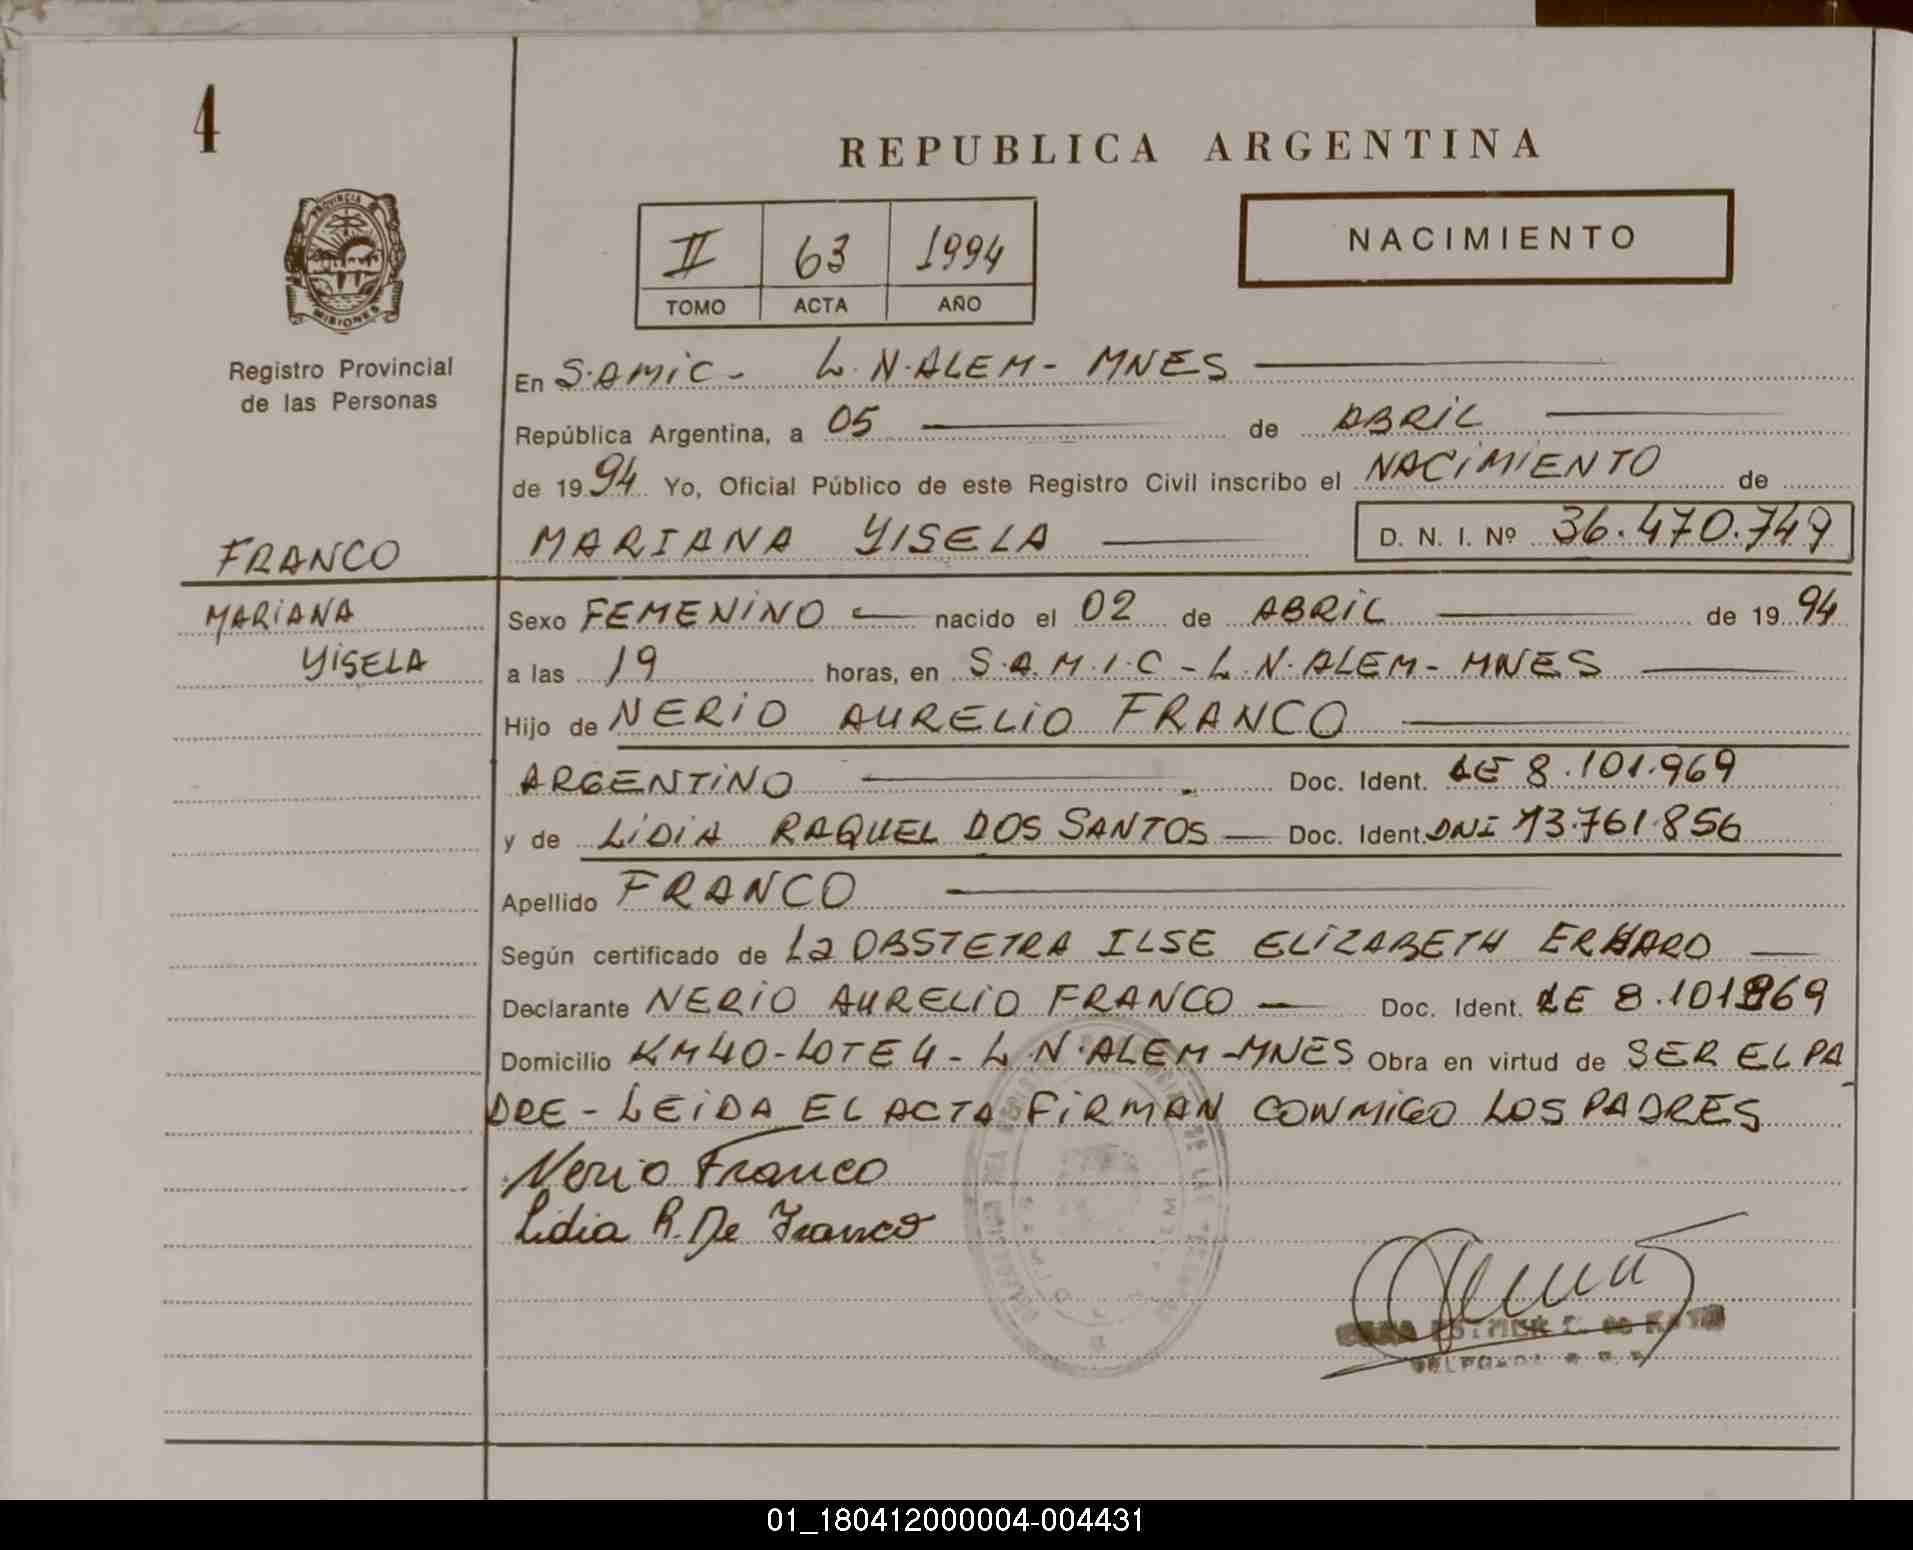 4
REPUBLICA ARGENTINA
PROVINCIA DE
MISIONES
Registro Provincial
de las Personas
II 63 1994
TOMO ACTA AÑO
NACIMIENTO
En S.AMIC - L.N.ALEM - MNES
República Argentina, a 05 de ABRIL
de 1994 Yo, Oficial Público de este Registro Civil inscribo el NACIMIENTO de
MARIANA YISELA D. N. I. Nº 36.470.749
FRANCO
MARIANA
YISELA
Sexo FEMENINO nacido el 02 de ABRIL de 1994
a las 19 horas, en S.A.M.I.C - L.N.ALEM - MNES
Hijo de NERIO AURELIO FRANCO
ARGENTINO Doc. Ident. LE 8.101.969
y de LIDIA RAQUEL DOS SANTOS Doc. Ident. DNI 13.761.856
Apellido FRANCO
Según certificado de La OBSTETRA ILSE ELIZABETH ERHARD
Declarante NERIO AURELIO FRANCO Doc. Ident. LE 8.101969
Domicilio KM40-LOTE 4 - L.N.ALEM-MNES Obra en virtud de SER EL PA
DRE - LEIDA EL ACTA FIRMAN CONMIGO LOS PADRES
Nerio Franco
Lidia R. De Franco
01_180412000004-004431